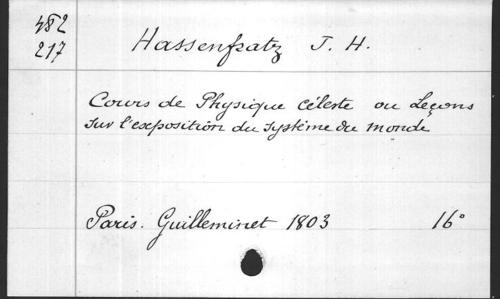 482
217
Hassenfratz J. H.
Cours de Physique céleste ou Leçons
sur l'exposition du système du monde
Paris. Guilleminet 1803 16°